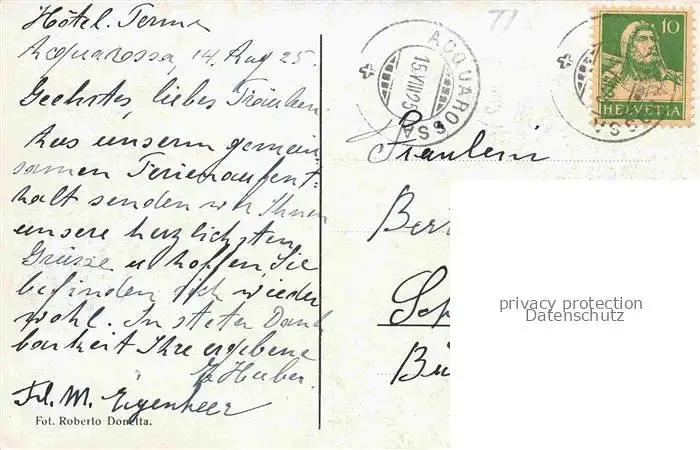 Hôtel. Terme
Acquarossa, 14. Aug 25.
Geehrtes, liebes Fräulein.
Aus unserm gemein-
samen Ferienaufent-
halt senden wir Ihnen
unsere herzlichsten
Grüsse u. hoffen, Sie
befinden sich wieder
wohl. In steter Dank
barkeit Ihre ergebene
Huber.
Frl. M. Eigenheer
Fot. Roberto Donetta.
ACQUAROSSA
15.VIII.25
10
HELVETIA
Fräulein
privacy protection
Datenschutz